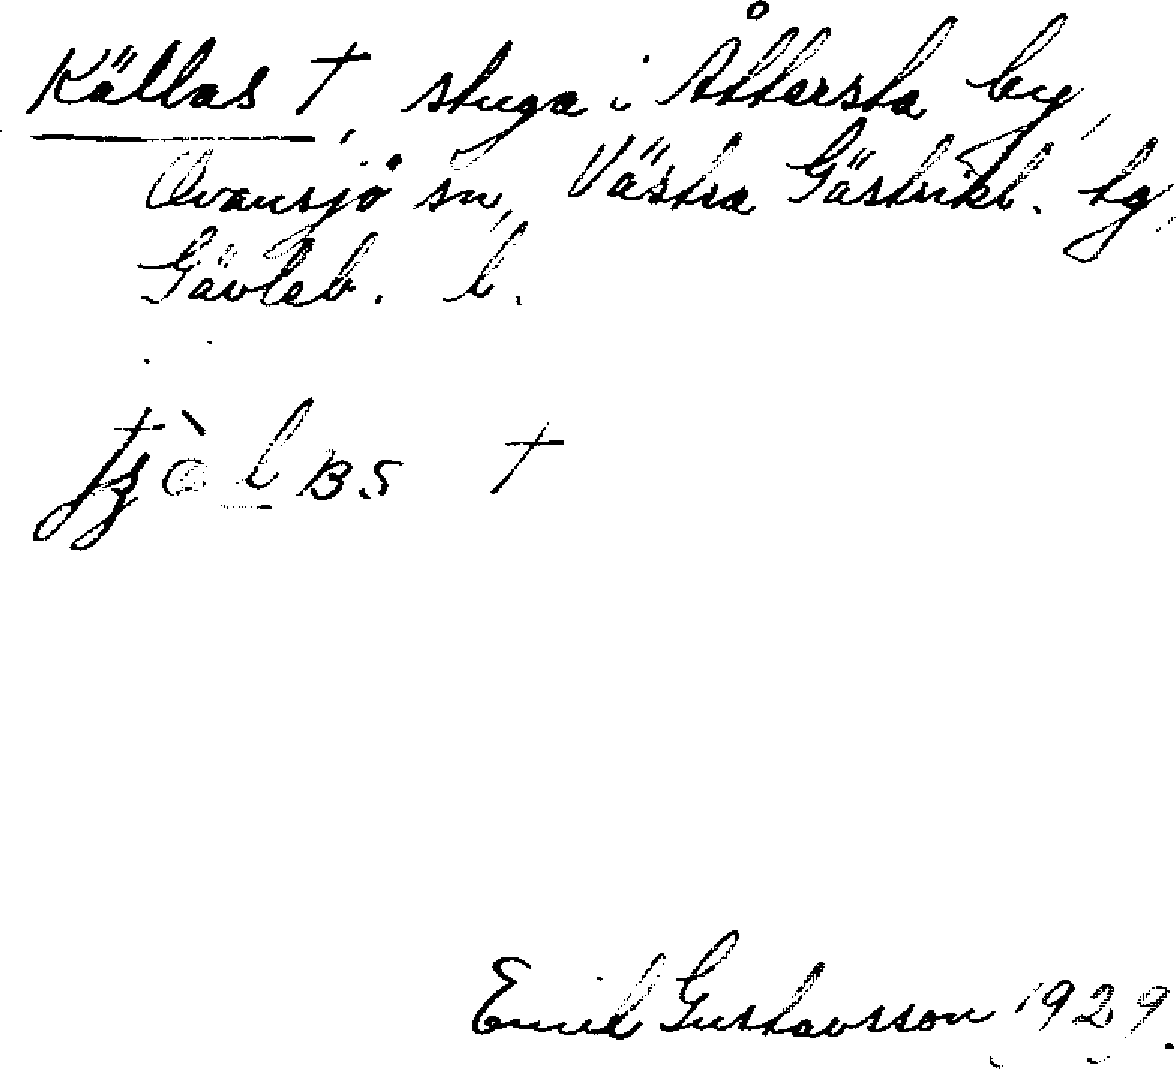 Källas †, stuga i Åttersta by,
Ovansjö sn, Västra Gästrikl. tg,
Gävleb. l.
†
Emil Gustavsson 1929.